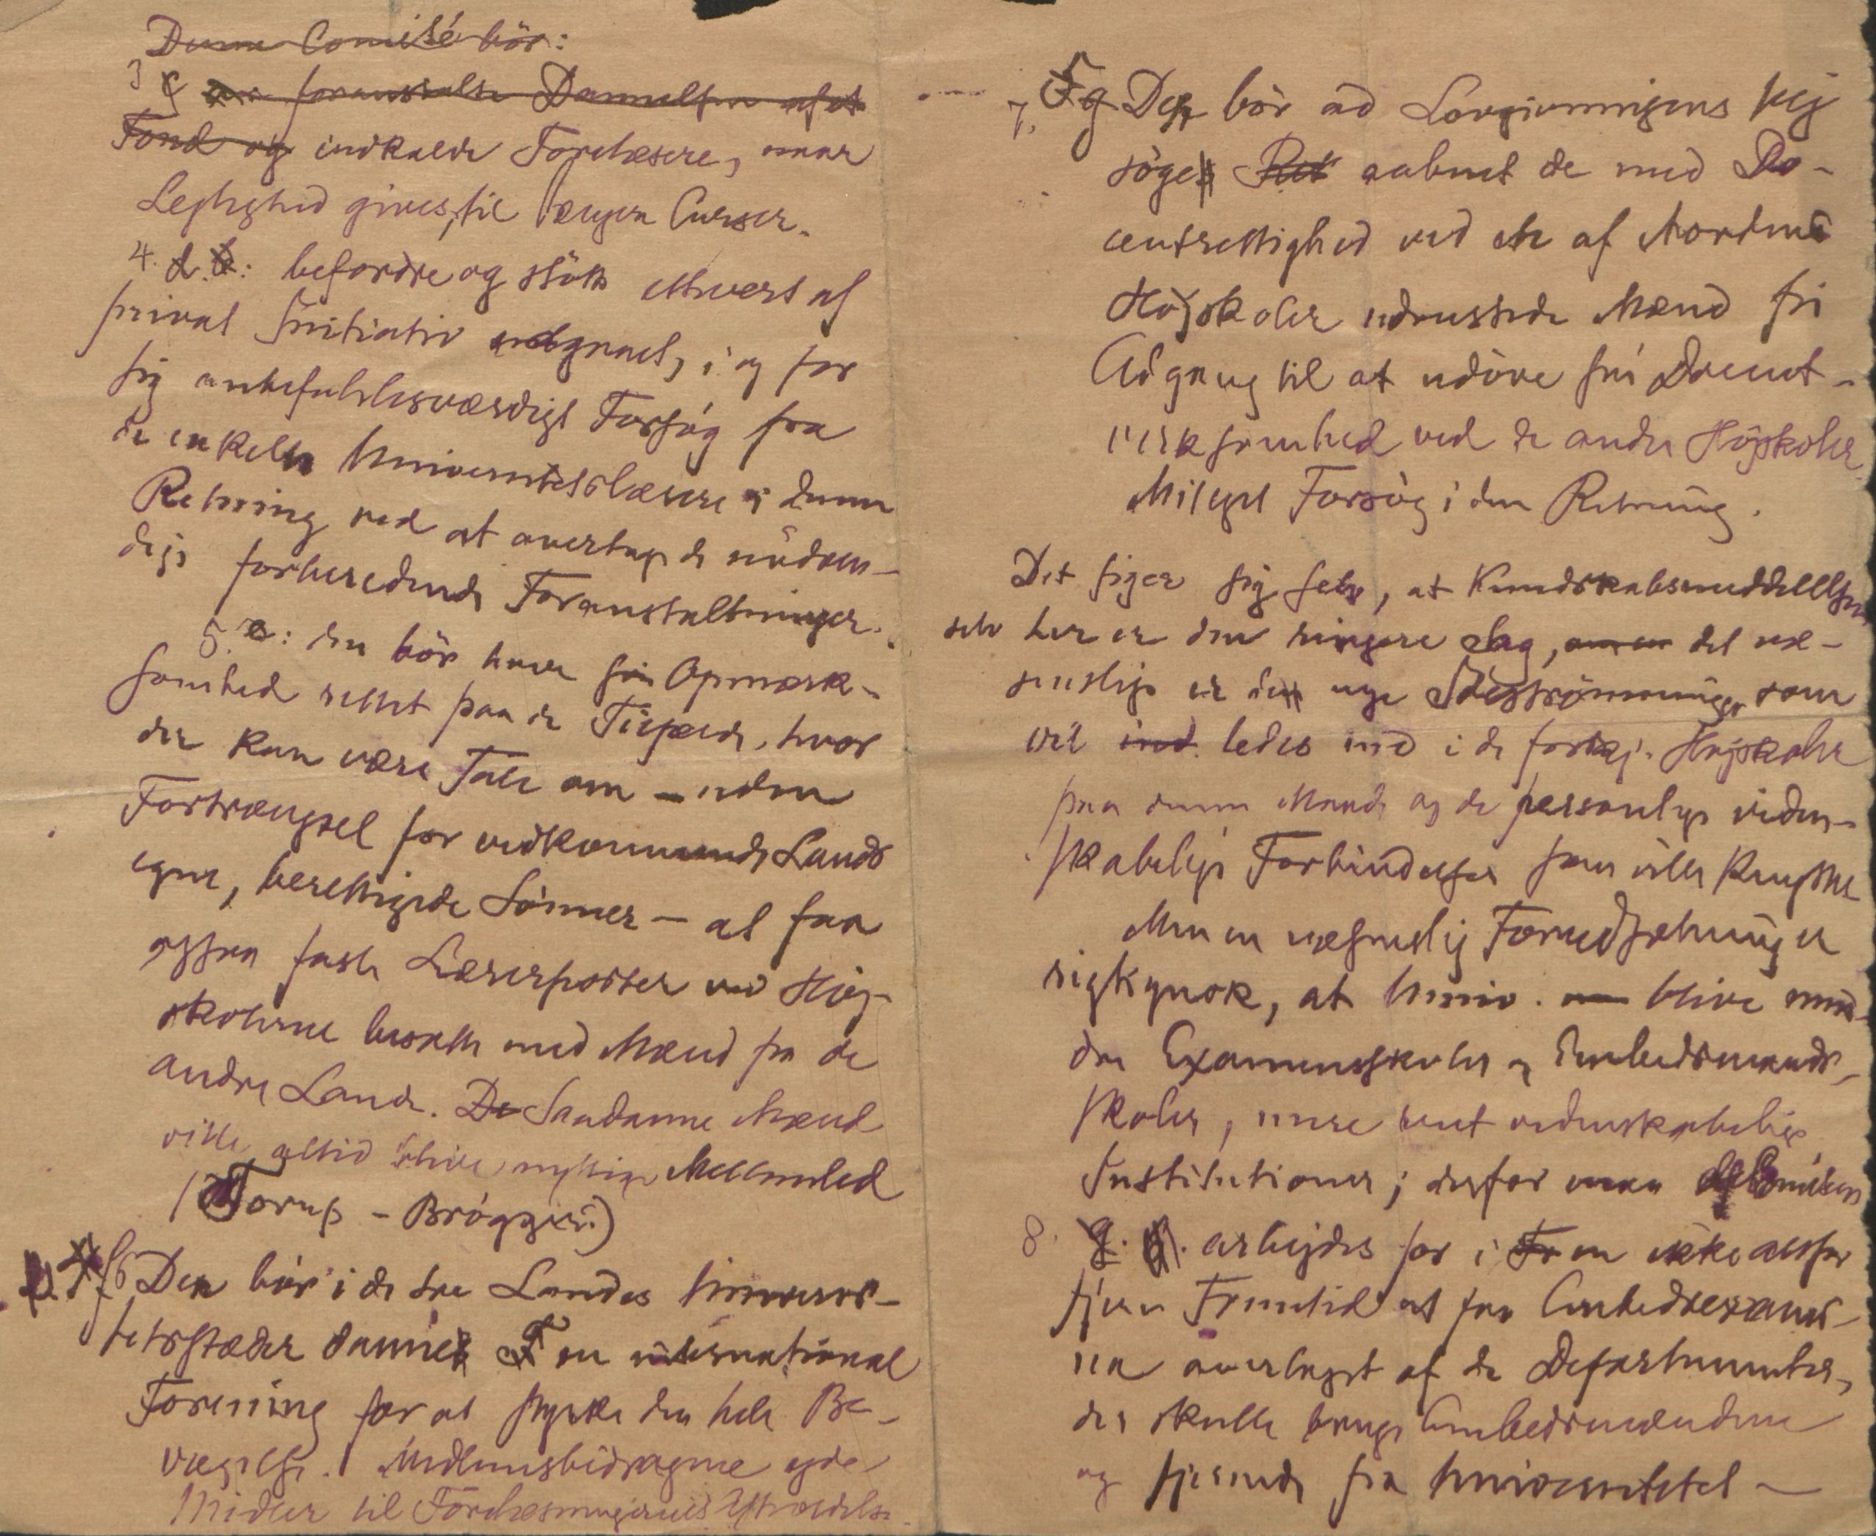 Denne Comité bör:
3 c foranstalte Dannelsen af et
Fond og indkalde Forelæsere, naar
Leilighed gives, til længere Curser.
4. d. b: befordre og stötte ethvert af
privat Initiativ udgaaet, i og for
sig anbefalelsesværdigt Forsög fra
de enkelte Universitetslærere i denne
Retning ved at overtage de nödven-
dige forberedende Foranstaltninger.
5. c: den bör have sin Opmærk-
somhed rettet paa de Tilfælde, hvor
der kan være Tale om – uden
Fortrængsel for vedkommende Lands
egne, berettigede Sönner – at faa
ogsaa faste Lærerposter ved Høj-
skolerne besatte med Mænd fra de
andre Lande. De Saadanne Mænd
ville altid blive nyttige Mellemled
(Torup – Brögger.)
f 6 Den bör i de tre Landes Univer-
sitetsstæder danne en international
Forening for at styrke den hele Be-
vægelse. Medlemsbidragene yde
Midler til Forelæsningernes Udbredelse.
7. g Der bör ad Lovgivningens Vej
söges Ret aabnet de med Do-
centrettighed ved en af Nordens
Højskoler udrustede Mænd fri
Adgang til at udöve fri Docent-
virksomhed ved de andre Højskoler.
Mislygt Forsög i den Retning.
Det siger sig selv, at Kundskabsmeddelelsen
selv her er den ringere Sag, det væ-
sentlige er den nye som
vil ind ledes ind i de forskj. Højskoler
paa denne Maade og de personlige viden-
skabelige Forbindelser som ville knyttes
Men en væsentlig Forudsætning er
rigtignok, at Univ. blive min-
dre Examensskoler og Embedsmands-
skoler, mere rent videnskabelige
Institutioner; derfor maa Comiteen
8. g. arbejdes for i en ikke altfor
fjern Fremtid at faa Embedsexami-
na overtaget af de Departementer,
der skulle bruge Embedsmændene
og fjernede fra Universitetet –